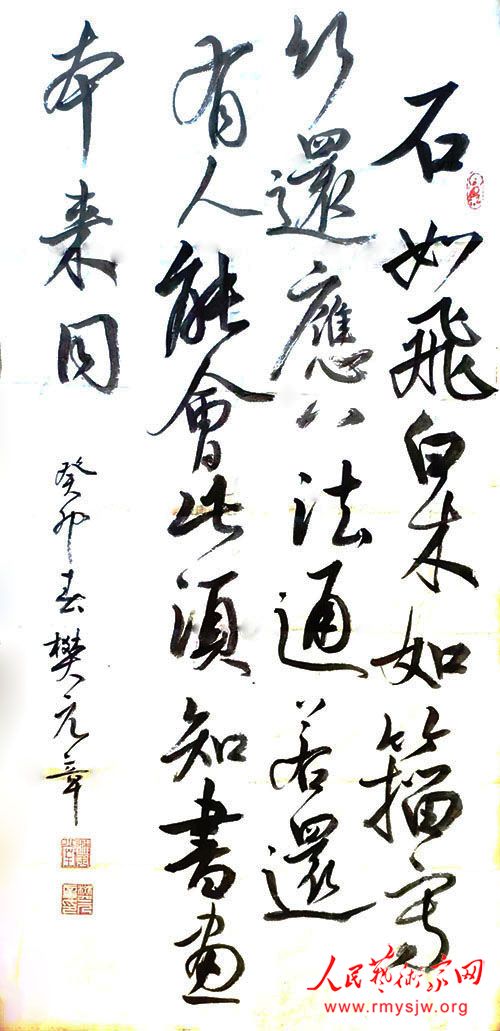 石如飛白木如籀寫
竹還應八法通若還
有人能會此須知書畫
本來同
癸卯春樊元章
人民藝術家网
www.rmysjw.org